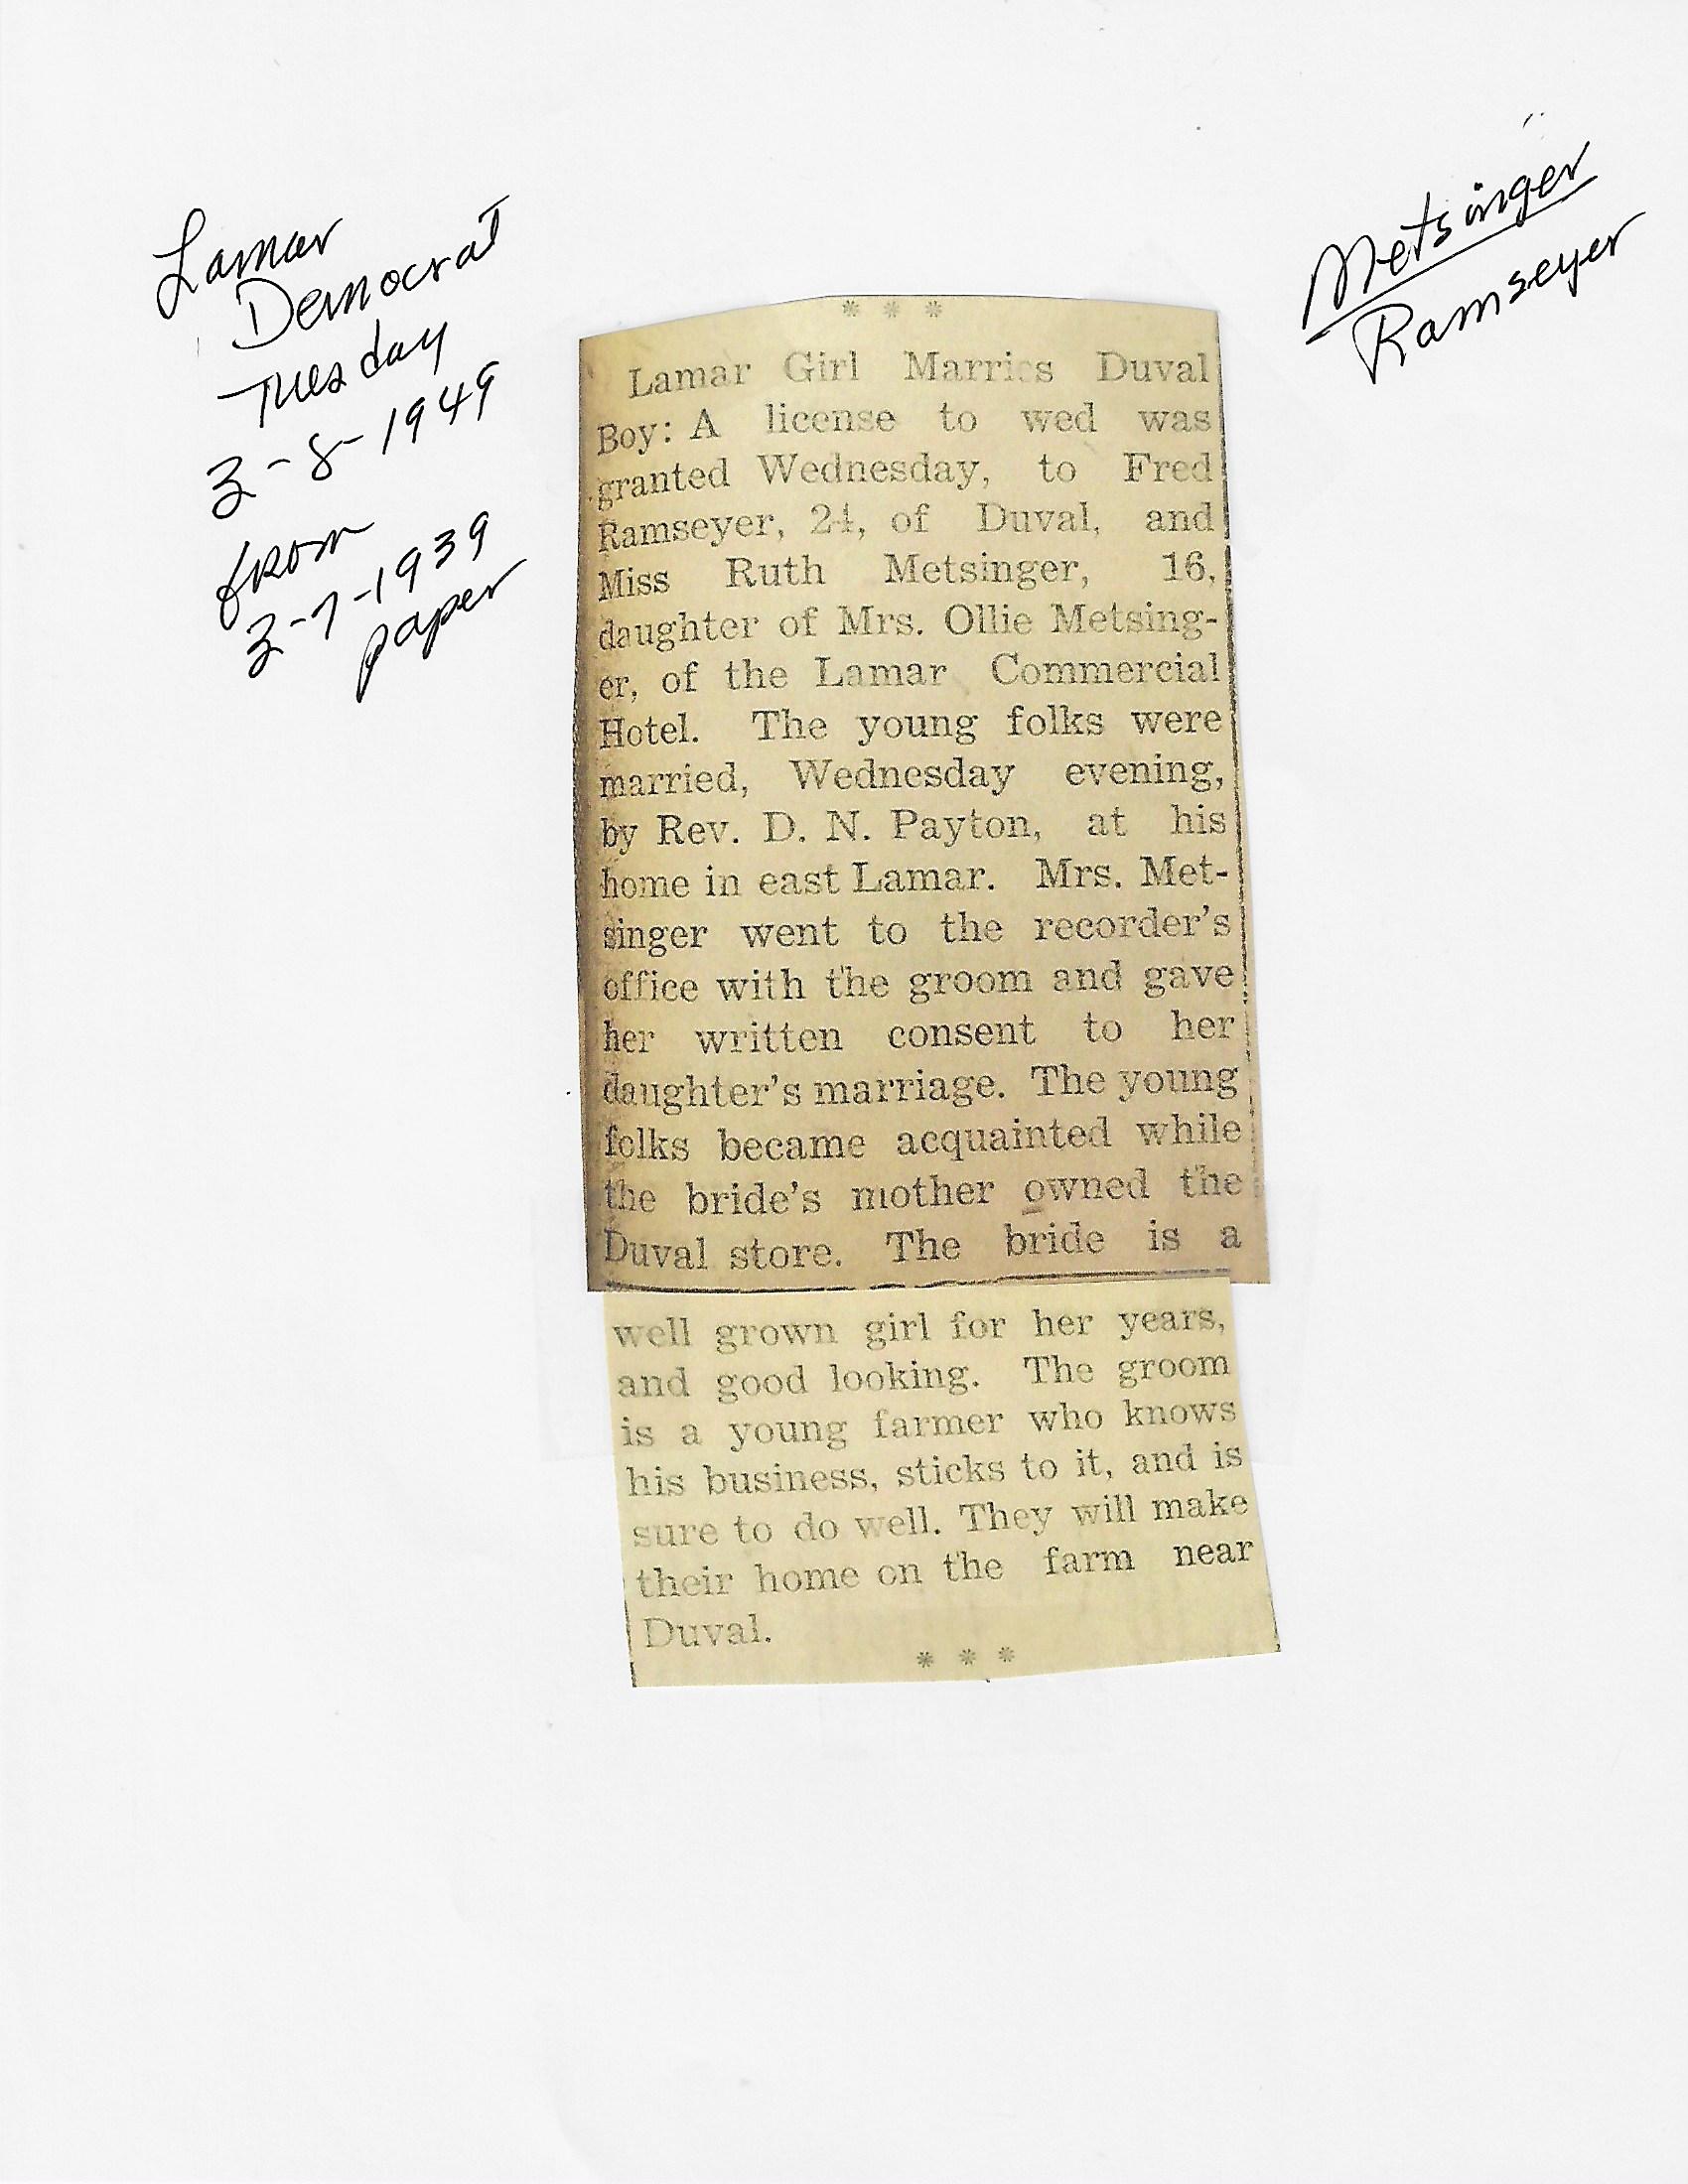 Lamar
Democrat
Tuesday
3-8-1949
from
3-7-1939
paper
Metsinger
Ramseyer
* * *
Lamar Girl Marries Duval
Boy: A license to wed was
granted Wednesday, to Fred
Ramseyer, 24, of Duval, and
Miss Ruth Metsinger, 16,
daughter of Mrs. Ollie Metsing-
er, of the Lamar Commercial
Hotel. The young folks were
married, Wednesday evening,
by Rev. D. N. Payton, at his
home in east Lamar. Mrs. Met-
singer went to the recorder's
office with the groom and gave
her written consent to her
daughter's marriage. The young
folks became acquainted while
the bride's mother owned the
Duval store. The bride is a
well grown girl for her years,
and good looking. The groom
is a young farmer who knows
his business, sticks to it, and is
sure to do well. They will make
their home on the farm near
Duval.
* * *